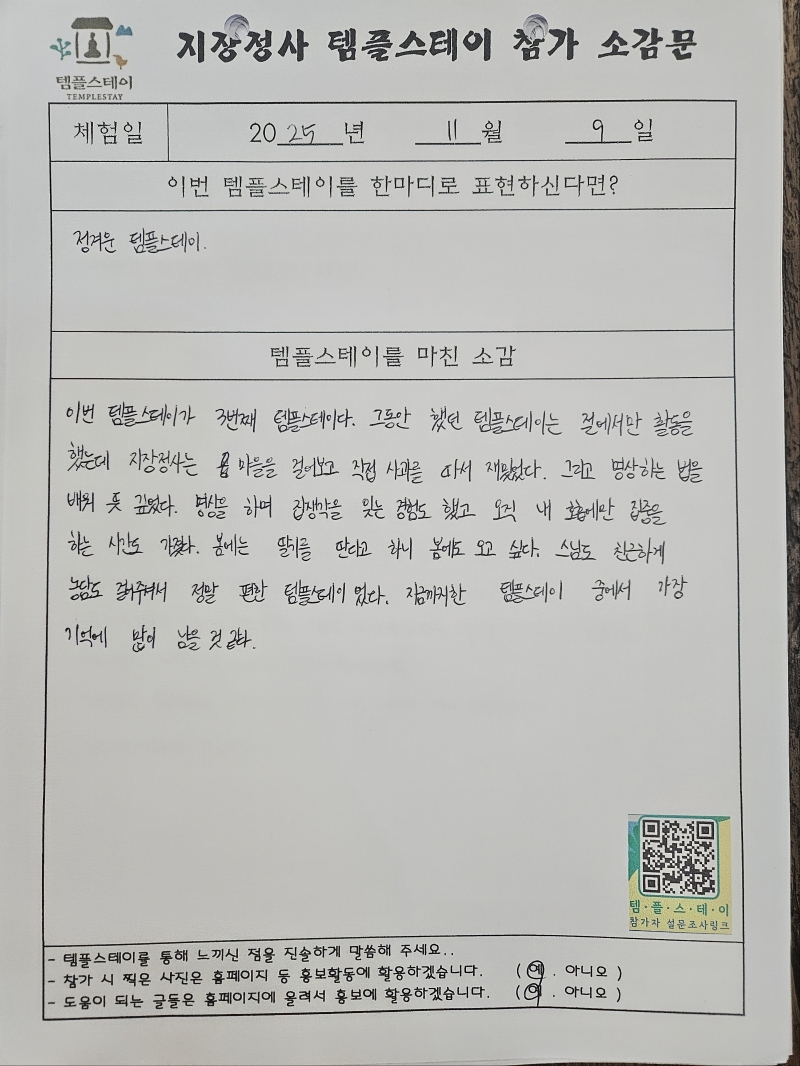 템플스테이
TEMPLESTAY
지장정사 템플스테이 참가 소감문
체험일 2025년 11월 9일
이번 템플스테이를 한마디로 표현하신다면?
정겨운 템플스테이.
템플스테이를 마친 소감
이번 템플스테이가 3번째 템플스테이다. 그동안 했던 템플스테이는 절에서만 활동을
했는데 지장정사는 마을을 걸어보고 직접 사과를 따서 재밌었다. 그리고 명상하는 법을
배워 뜻 깊었다. 명상을 하며 잡생각을 잊는 경험도 했고 오직 내 호흡에만 집중을
하는 시간도 가졌다. 봄에는 딸기를 딴다고 하니 봄에도 오고 싶다. 스님도 친근하게
농담도 걸어주셔서 정말 편한 템플스테이 였다. 지금까지한 템플스테이 중에서 가장
기억에 많이 남을 것 같다.
템·플·스·테·이
참가자 설문조사링크
- 템플스테이를 통해 느끼신 점을 진솔하게 말씀해 주세요..
- 참가 시 찍은 사진은 홈페이지 등 홍보활동에 활용하겠습니다. ( 예 . 아니오 )
- 도움이 되는 글들은 홈페이지에 올려서 홍보에 활용하겠습니다. ( 예 . 아니오 )